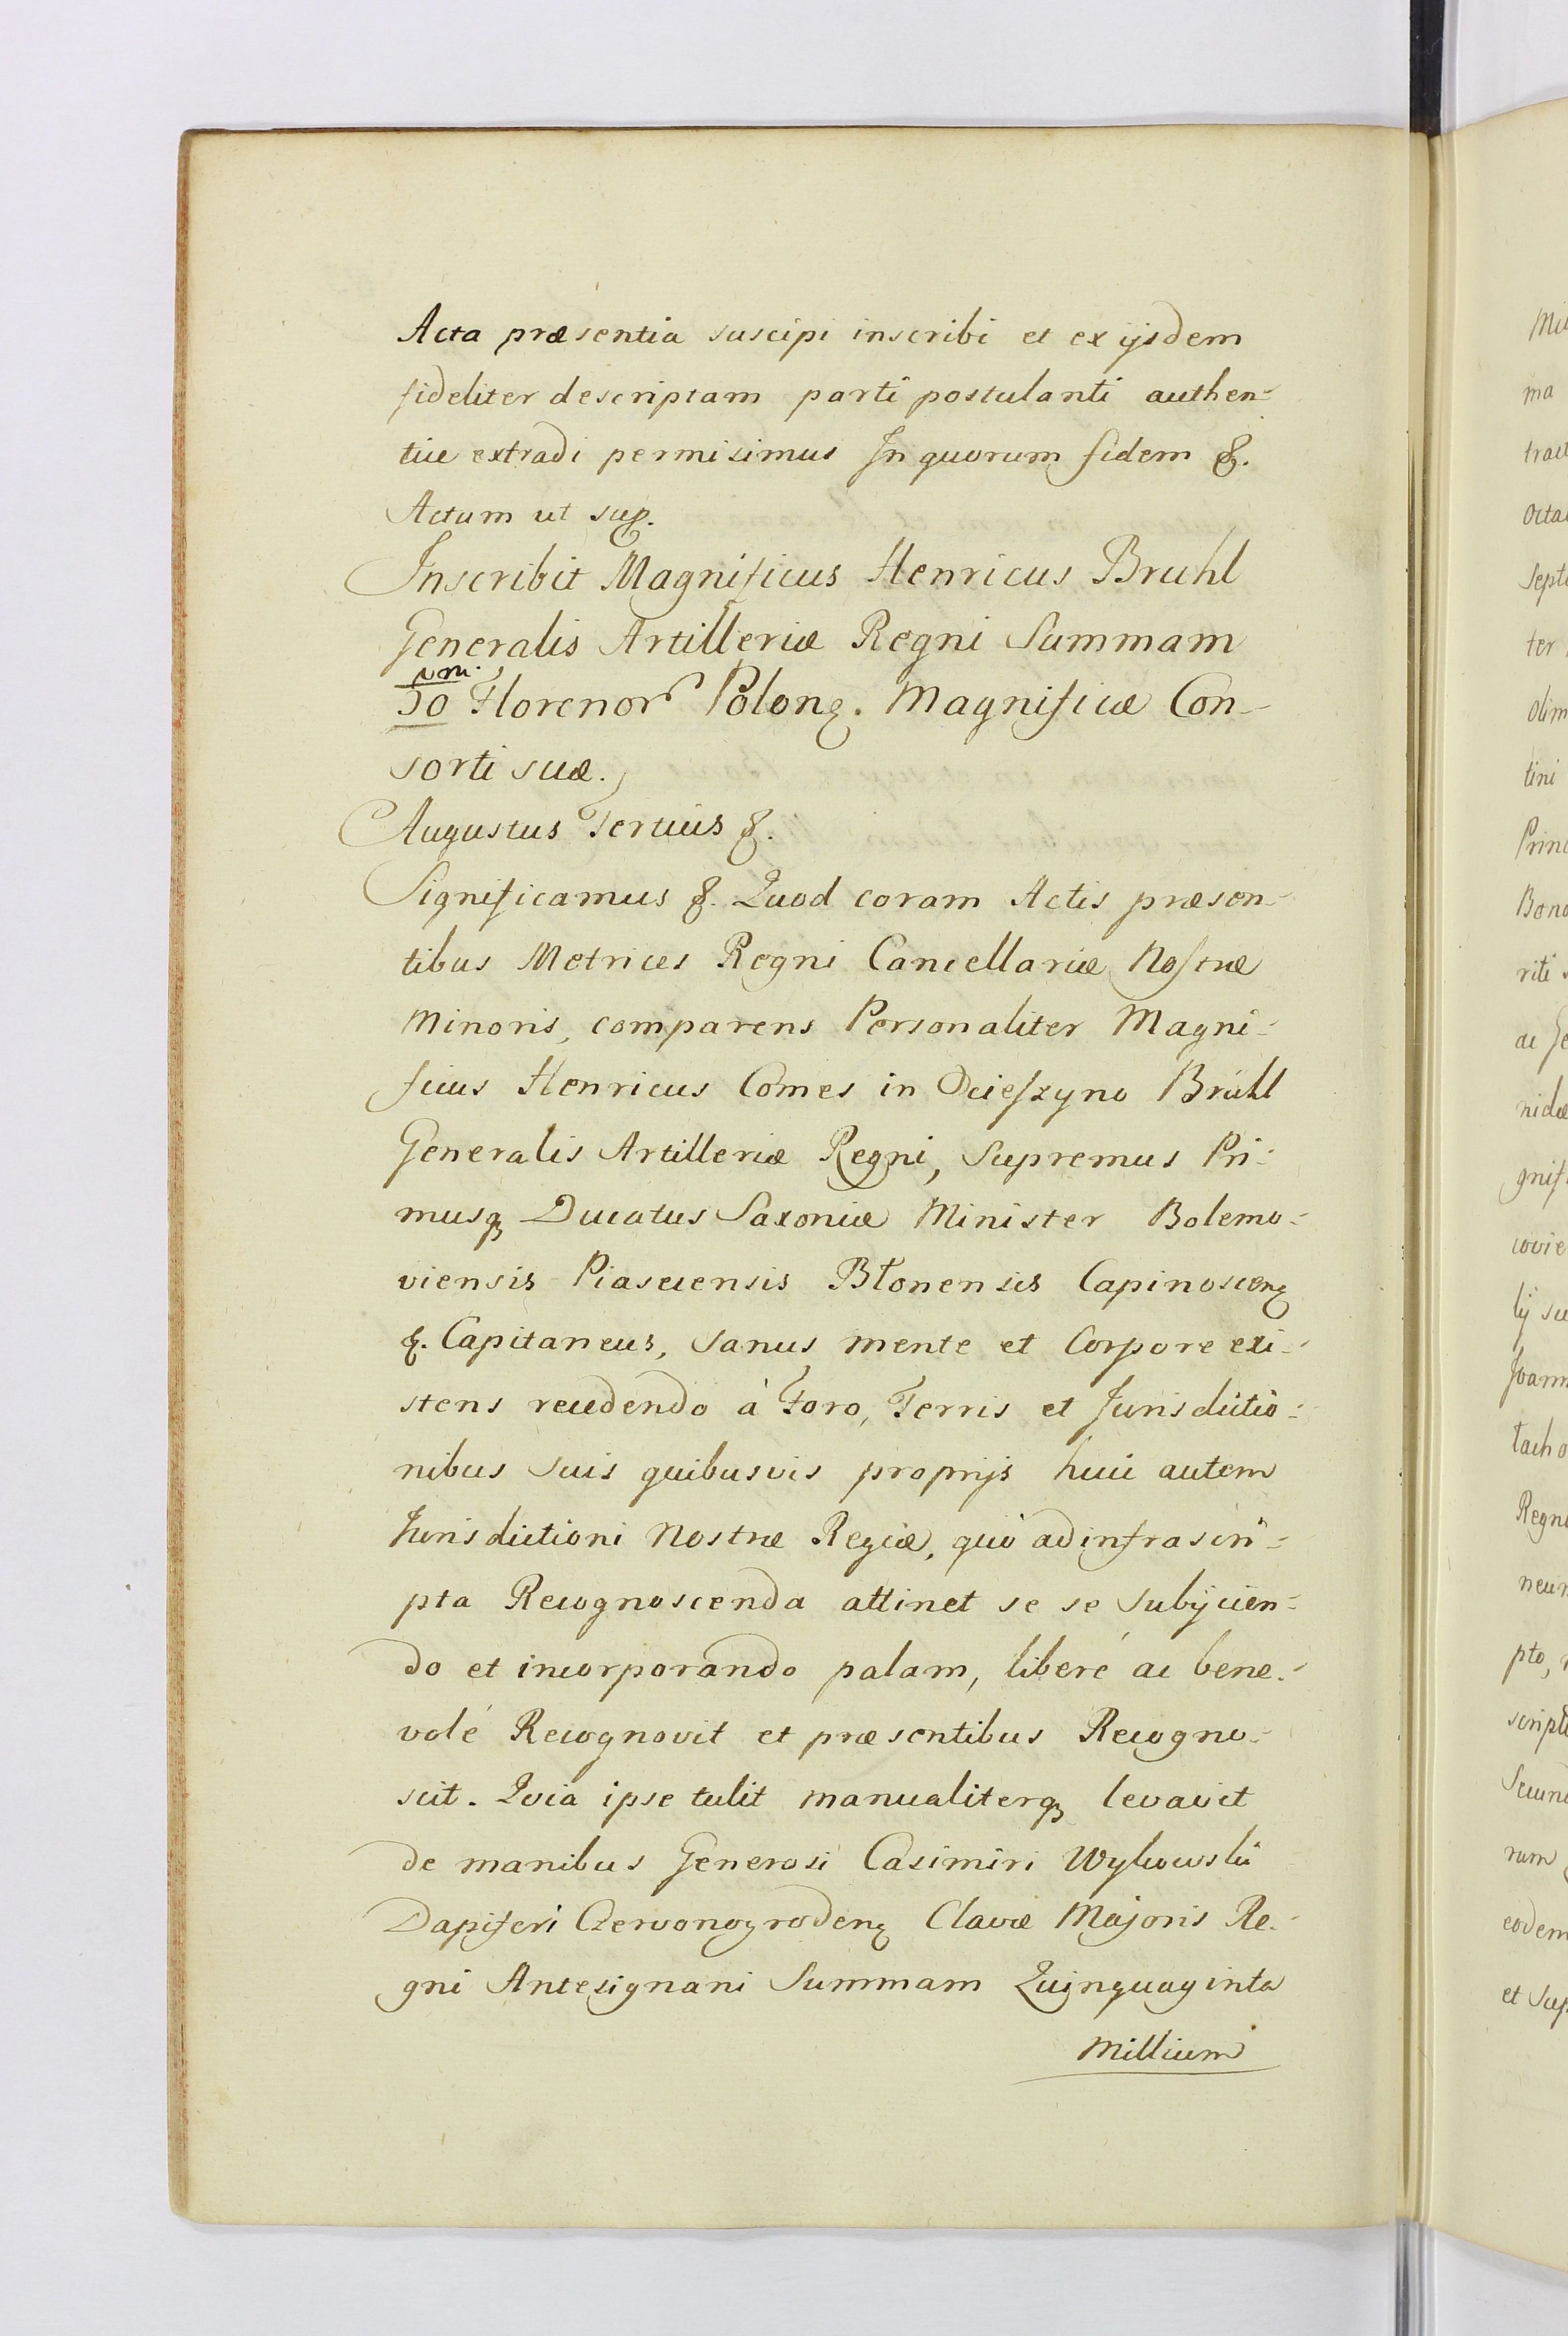 Acta præsentia suscipi inscribi et ex ijsdem
fideliter descriptam parti postulanti authen-
tice extradi permisimus In quorum fidem &.
Actum ut sup.
Inscribit Magnificus Henricus Bruhl
Generalis Artilleriæ Regni Summam
50 Florenor Polon. Magnificæ Con-
sorti suæ.
Augustus Tertius &.
Significamus &. Quod coram Actis præsen-
tibus Metrices Regni Cancellariæ Nostræ
Minoris, comparens Personaliter Magni-
ficus Henricus Comes in Ocieszyno Brühl
Generalis Artilleriæ Regni, Supremus Pri-
musq Ducatus Saxoniæ Minister Bolemo-
viensis Piasecensis Błonensis Capinoscen
&. Capitaneus, sanus mente et Corpore exi-
stens recedendo à Foro, Terris et Jurisdictio-
nibus suis quibusvis proprijs huic autem
Jurisdictioni Nostræ Regiæ, quò ad infrascri-
pta Recognoscenda attinet se se subijcien-
do et incorporando palam, liberé ac bene-
volé Recognovit et præsentibus Recogno-
scit. Quia ipse tulit manualiterq levavit
de manibus Generosi Casimiri Wykowski
Dapiferi Czerwonogroden Clavæ Majoris Re-
gni Antesignani Summam Quinquaginta
Millium
ma
ter
olim
tini
Bono
riti
ac Ge
nidæ
gnif
covie
Regn
neun
pto,
script
rum
eodem
et Sup